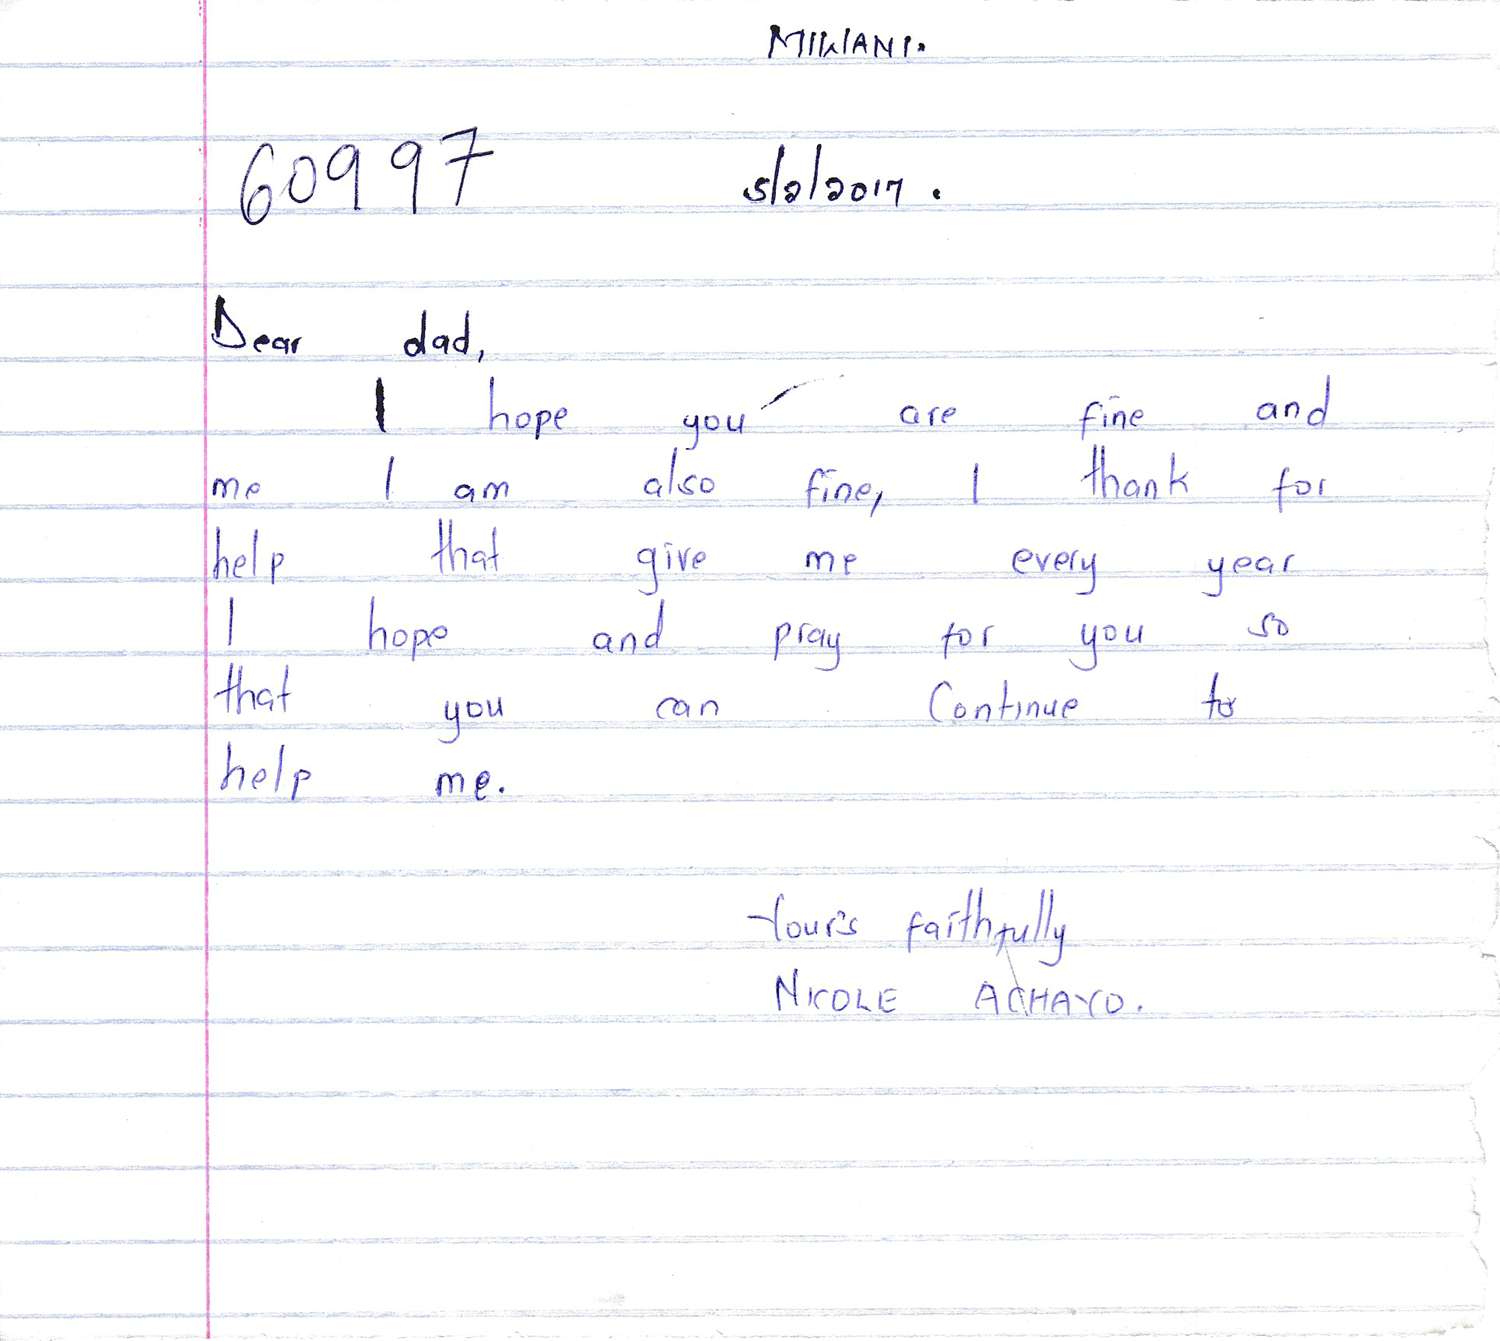 MIWANI.
60997 5/2/2017.
Dear dad,
I hope you are fine and
me I am also fine, I thank for
help that give me every year
I hope and pray for you so
that you can Continue to
help me.
Your's faithfully
NICOLE ACHAYO.